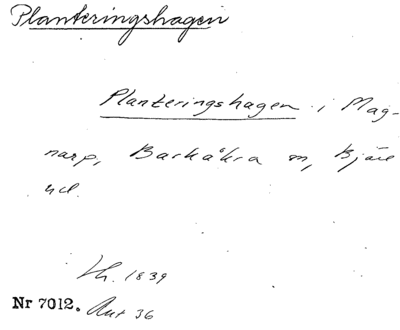 Planteringshagen
Planteringshagen i Mag-
narp, Barkåkra sn, Bjäre
hd.
Lh. 1839
Nr 7012. Akt 36